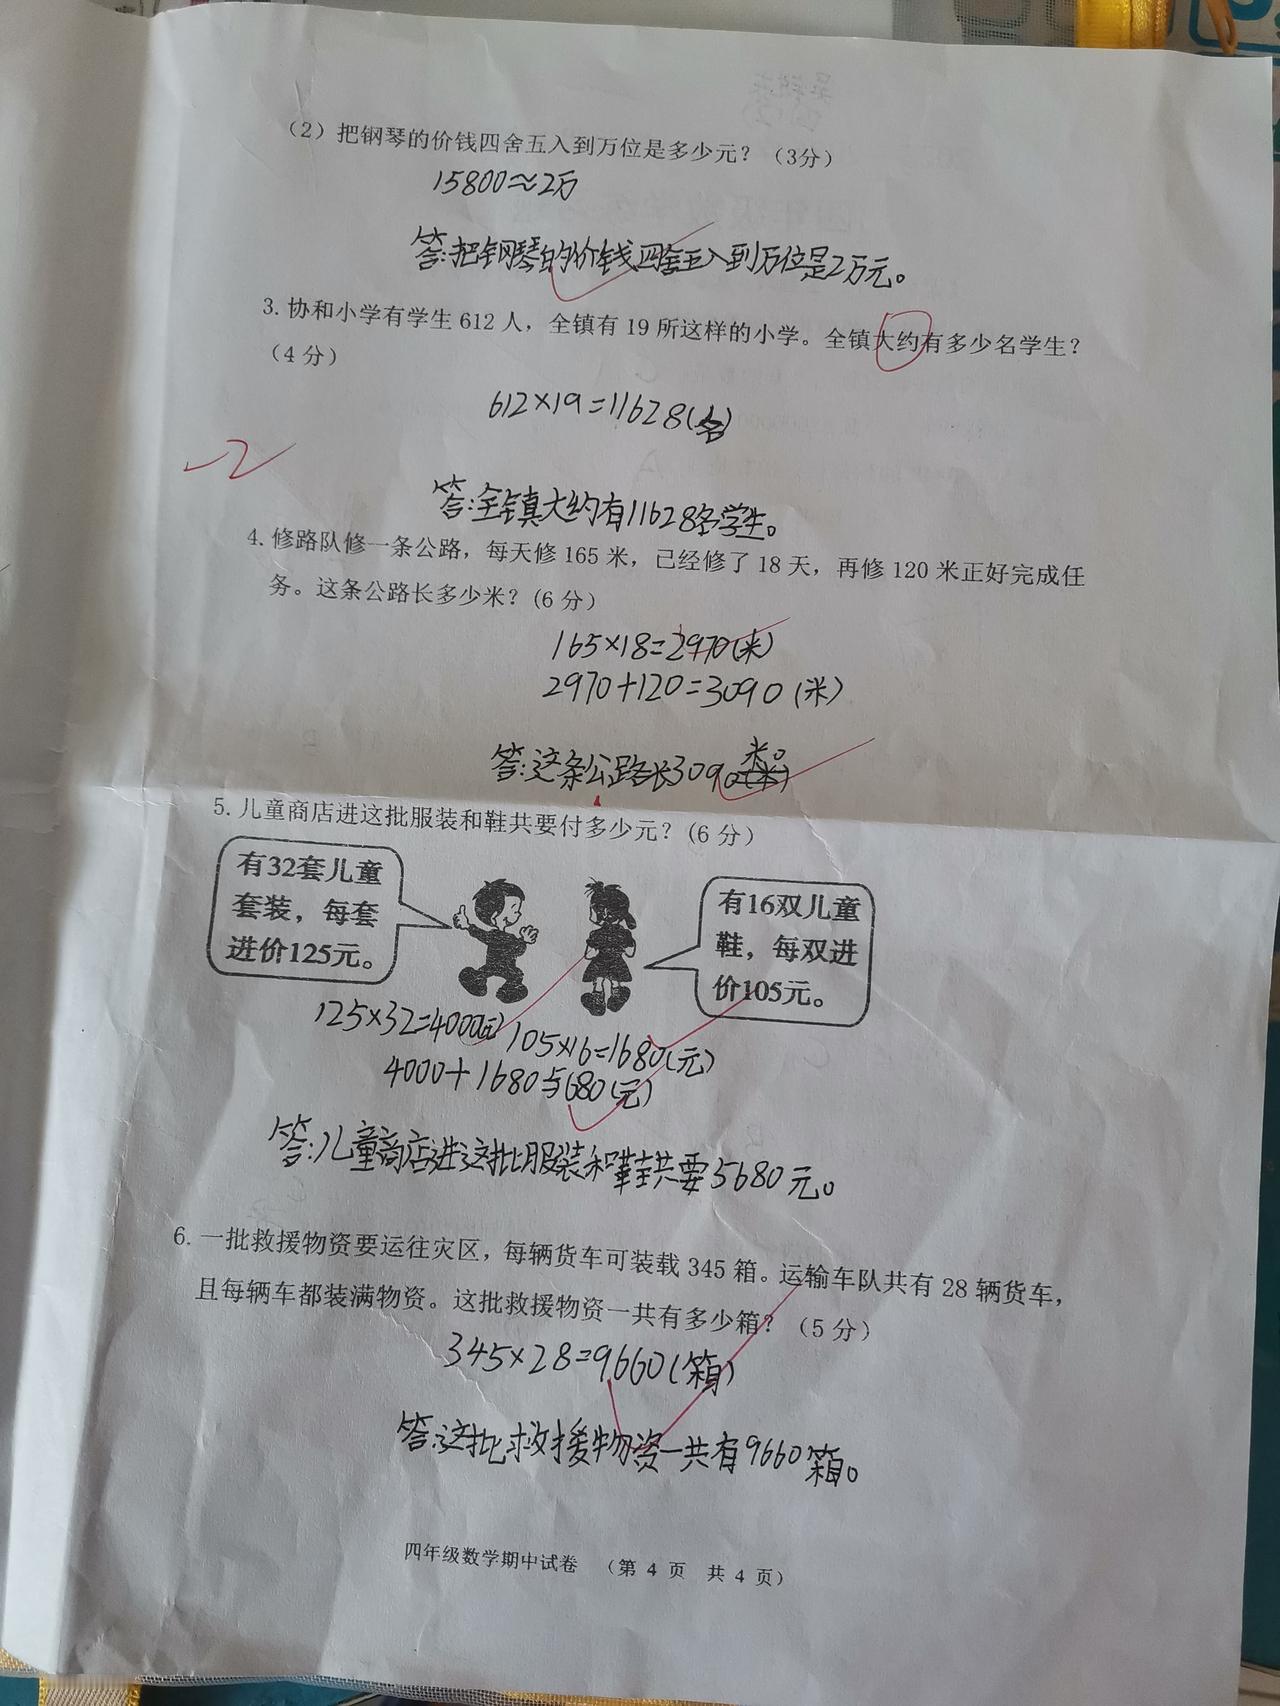 （2）把钢琴的价钱四舍五入到万位是多少元？（3分）
15800≈2万
答:把钢琴的价钱四舍五入到万位是2万元。
3. 协和小学有学生 612 人，全镇有 19 所这样的小学。全镇大约有多少名学生？
（4 分）
612×19=11628(名)
-2
答:全镇大约有11628名学生。
4. 修路队修一条公路，每天修 165 米，已经修了 18 天，再修 120 米正好完成任
务。这条公路长多少米？(6 分）
165×18=2970(米)
2970+120=3090(米)
答:这条公路长3090米。
5. 儿童商店进这批服装和鞋共要付多少元？(6 分）
有32套儿童
套装，每套
进价125元。
有16双儿童
鞋，每双进
价105元。
125×32=4000(元)
105×16=1680(元)
4000+1680=5680(元)
答:儿童商店进这批服装和鞋共要5680元。
6. 一批救援物资要运往灾区，每辆货车可装载 345 箱。运输车队共有 28 辆货车，
且每辆车都装满物资。这批救援物资一共有多少箱？（5 分）
345×28=9660(箱)
答:这批救援物资一共有9660箱。
四年级数学期中试卷 （第 4 页 共 4 页）